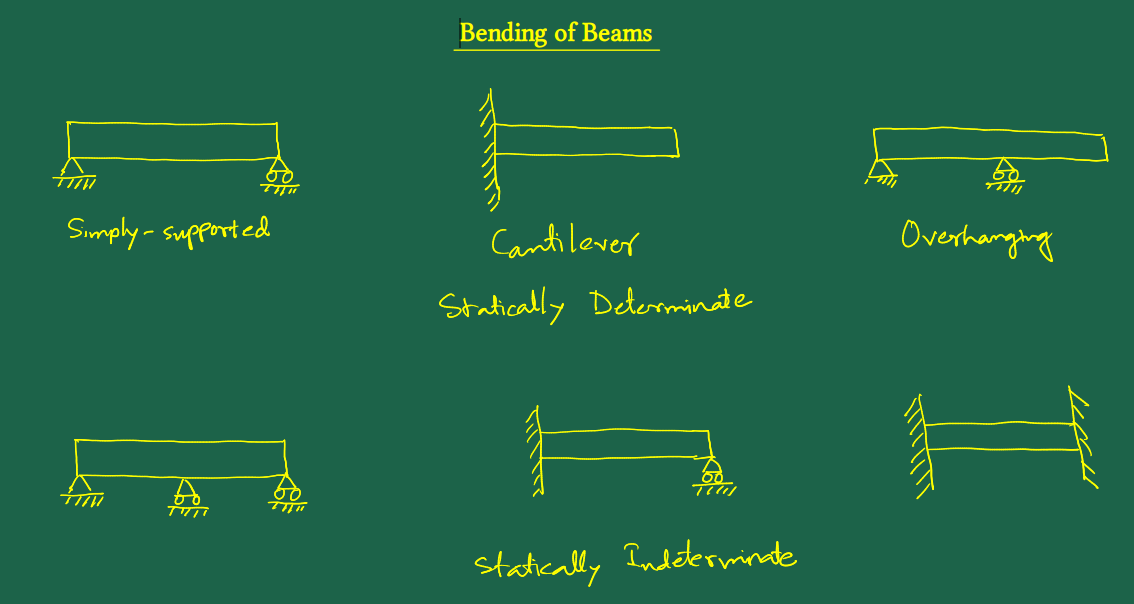 Bending of Beams
Simply-supported
Cantilever
Overhanging
Statically Determinate
Statically Indeterminate